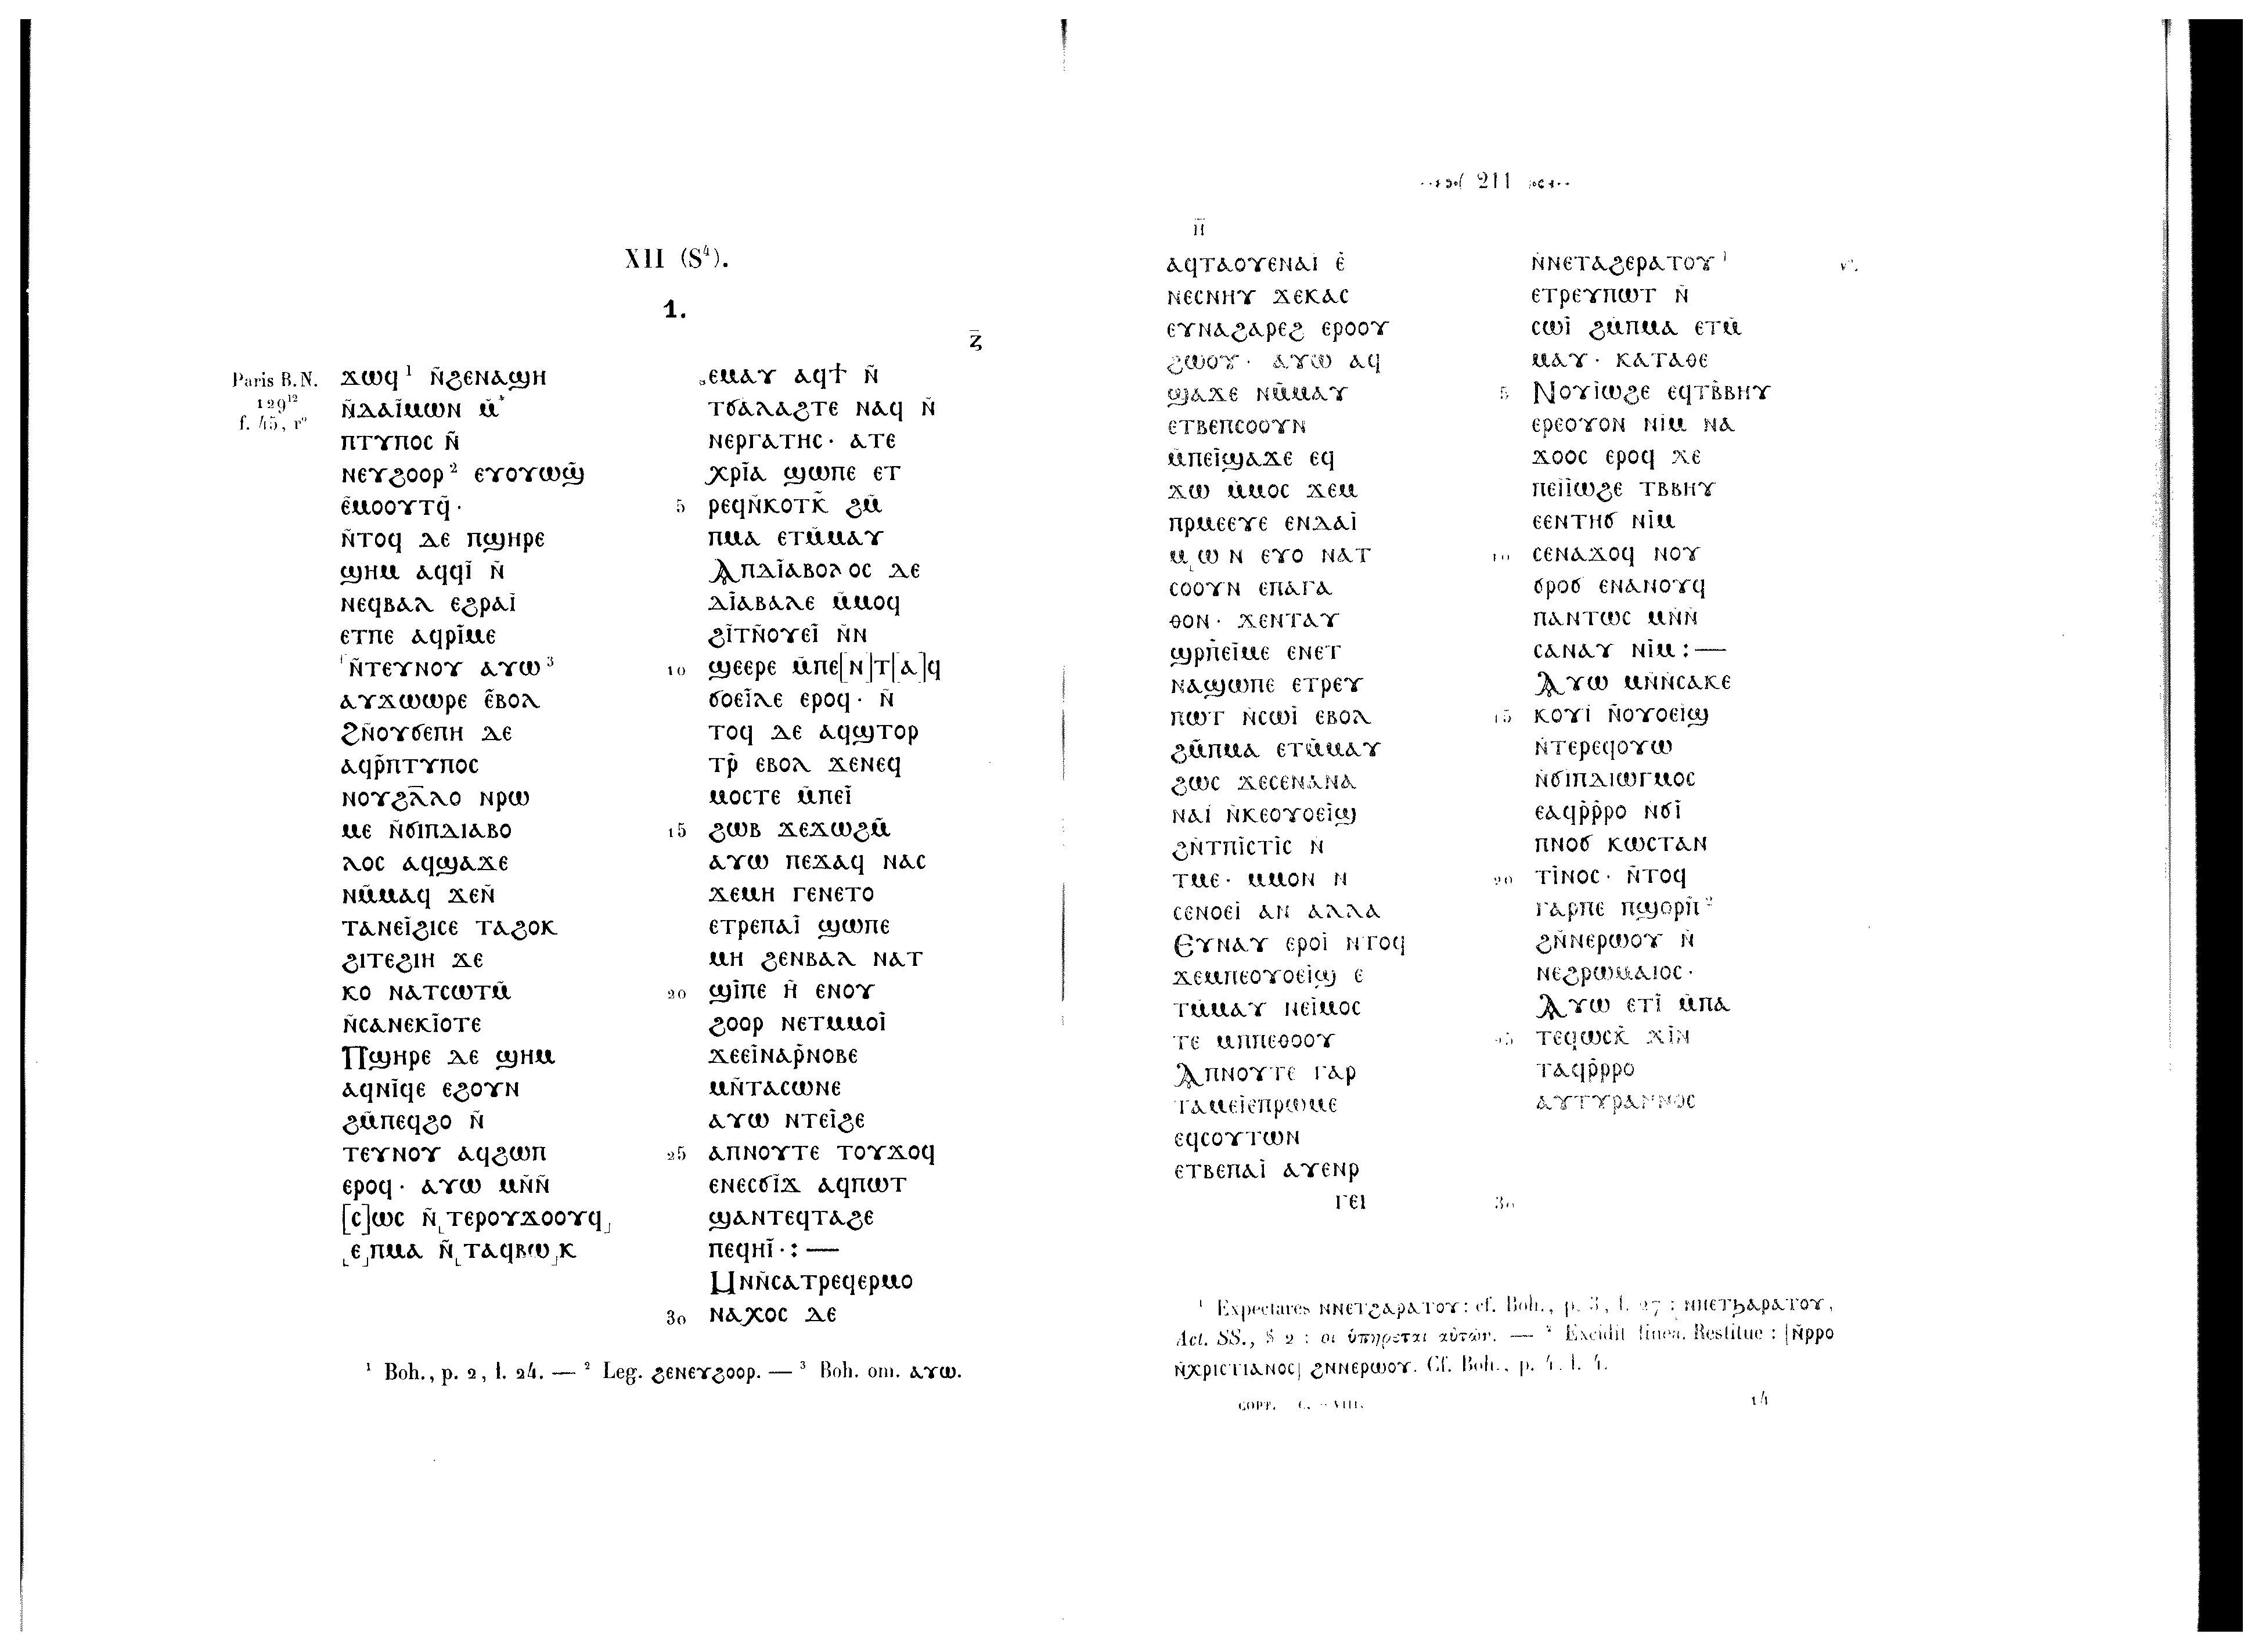 XII (S⁴).
1.
ⲍ̄
Paris B.N.
129¹²
f. 45, rº
ϫⲱϥ¹ ⲛ̄ϩⲉⲛⲁϣⲏ
ⲛ̄ⲇⲁⲓ̈ⲙⲱⲛ ⲙ̄
ⲡⲧⲩⲡⲟⲥ ⲛ̄
ⲛⲉⲩϩⲟⲟⲣ² ⲉⲩⲟⲩⲱϣ̄
ⲉ̄ⲙⲟⲟⲩⲧϥ̄·
ⲛ̄ⲧⲟϥ ⲇⲉ ⲡϣⲏⲣⲉ
ϣⲏⲙ ⲁϥϥⲓ̈ ⲛ̄
ⲛⲉϥⲃⲁⲗ ⲉϩⲣⲁⲓ̈
ⲉⲧⲡⲉ ⲁϥⲣⲓ̈ⲙⲉ
ⲛ̄ⲧⲉⲩⲛⲟⲩ ⲁⲩⲱ³
ⲁⲩϫⲱⲱⲣⲉ ⲉ̄ⲃⲟⲗ
ϩⲛ̄ⲟⲩϭⲉⲡⲏ ⲇⲉ
ⲁϥⲣ̄ⲡⲧⲩⲡⲟⲥ
ⲛⲟⲩϩⲗ̄ⲗⲟ ⲛⲣⲱ
ⲙⲉ ⲛ̄ϭⲓⲡⲇⲓⲁⲃⲟ
ⲗⲟⲥ ⲁϥϣⲁϫⲉ
ⲛⲙ̄ⲙⲁϥ ϫⲉⲛ̄
ⲧⲁⲛⲉⲓ̈ϩⲓⲥⲉ ⲧⲁϩⲟⲕ
ϩⲓⲧⲉϩⲓⲏ ϫⲉ
ⲕⲟ ⲛⲁⲧⲥⲱⲧⲙ̄
ⲛ̄ⲥⲁⲛⲉⲕⲓ̈ⲟⲧⲉ
Ⲡϣⲏⲣⲉ ⲇⲉ ϣⲏⲙ
ⲁϥⲛⲓ̈ϥⲉ ⲉϩⲟⲩⲛ
ϩⲙ̄ⲡⲉϥϩⲟ ⲛ̄
ⲧⲉⲩⲛⲟⲩ ⲁϥϩⲱⲡ
ⲉⲣⲟϥ· ⲁⲩⲱ ⲙⲛ̄ⲛ̄
[ⲥ]ⲱⲥ ⲛ̄⸤ⲧⲉⲣⲟⲩϫⲟⲟⲩϥ⸥
⸤ⲉ⸥ⲡⲙⲁ ⲛ̄⸤ⲧⲁϥⲃⲱ⸥ⲕ
ⲉⲙⲁⲩ ⲁϥϯ ⲛ̄
ⲧϭⲁⲗⲁϩⲧⲉ ⲛⲁϥ ⲛ̄
ⲛⲉⲣⲅⲁⲧⲏⲥ· ⲁⲧⲉ
ⲭⲣⲓ̈ⲁ ϣⲱⲡⲉ ⲉⲧ
5 ⲣⲉϥⲛ̄ⲕⲟⲧⲕ̄ ϩⲙ̄
ⲡⲙⲁ ⲉⲧⲙ̄ⲙⲁⲩ
Ⲁⲡⲇⲓ̈ⲁⲃⲟⲗⲟⲥ ⲇⲉ
ⲇⲓ̈ⲁⲃⲁⲗⲉ ⲙ̄ⲙⲟϥ
ϩⲓ̈ⲧⲛ̄ⲟⲩⲉⲓ̈ ⲛ̄ⲛ
10 ϣⲉⲉⲣⲉ ⲙ̄ⲡⲉ[ⲛ]ⲧ[ⲁ]ϥ
ϭⲟⲉⲓ̈ⲗⲉ ⲉⲣⲟϥ· ⲛ̄
ⲧⲟϥ ⲇⲉ ⲁϥϣⲧⲟⲣ
ⲧⲣ̄ ⲉⲃⲟⲗ ϫⲉⲛⲉϥ
ⲙⲟⲥⲧⲉ ⲙ̄ⲡⲉⲓ̈
15 ϩⲱⲃ ϫⲉϫⲱϩⲙ̄
ⲁⲩⲱ ⲡⲉϫⲁϥ ⲛⲁⲥ
ϫⲉⲙⲏ ⲅⲉⲛⲉⲧⲟ
ⲉⲧⲣⲉⲡⲁⲓ̈ ϣⲱⲡⲉ
ⲙⲏ ϩⲉⲛⲃⲁⲗ ⲛⲁⲧ
20 ϣⲓ̈ⲡⲉ ⲏ̄ ⲉⲛⲟⲩ
ϩⲟⲟⲣ ⲛⲉⲧⲙⲙⲟⲓ̈
ϫⲉⲉⲓ̈ⲛⲁⲣ̄ⲛⲟⲃⲉ
ⲙⲛ̄ⲧⲁⲥⲱⲛⲉ
ⲁⲩⲱ ⲛⲧⲉⲓ̈ϩⲉ
25 ⲁⲡⲛⲟⲩⲧⲉ ⲧⲟⲩϫⲟϥ
ⲉⲛⲉⲥϭⲓ̈ϫ ⲁϥⲡⲱⲧ
ϣⲁⲛⲧⲉϥⲧⲁϩⲉ
ⲡⲉϥⲏⲓ̈·:—
Ⲙⲛⲛ̄ⲥⲁⲧⲣⲉϥⲉⲣⲙⲟ
30 ⲛⲁⲭⲟⲥ ⲇⲉ
¹ Boh., p. 2, l. 24. — ² Leg. ϩⲉⲛⲉⲩϩⲟⲟⲣ. — ³ Boh. om. ⲁⲩⲱ.
211
ⲏ̄
ⲁϥⲧⲁⲟⲩⲉⲛⲁⲓ̈ ⲉ̄
ⲛⲉⲥⲛⲏⲩ ϫⲉⲕⲁⲥ
ⲉⲩⲛⲁϩⲁⲣⲉϩ ⲉⲣⲟⲟⲩ
ϩⲱⲟⲩ· ⲁⲩⲱ ⲁϥ
ϣⲁϫⲉ ⲛⲙ̄ⲙⲁⲩ
ⲉⲧⲃⲉⲡⲥⲟⲟⲩⲛ
ⲙ̄ⲡⲉⲓ̈ϣⲁϫⲉ ⲉϥ
ϫⲱ ⲙ̄ⲙⲟⲥ ϫⲉⲙ
ⲡⲣⲙⲉⲉⲩⲉ ⲉⲛⲇⲁⲓ̈
ⲙⲱⲛ ⲉⲩⲟ ⲛⲁⲧ
ⲥⲟⲟⲩⲛ ⲉⲡⲁⲅⲁ
ⲑⲟⲛ· ϫⲉⲛⲧⲁⲩ
ϣⲣⲡ̄ⲉⲓ̈ⲙⲉ ⲉⲛⲉⲧ
ⲛⲁϣⲱⲡⲉ ⲉⲧⲣⲉⲩ
ⲡⲱⲧ ⲛ̄ⲥⲱⲓ̈ ⲉⲃⲟⲗ
ϩⲙ̄ⲡⲙⲁ ⲉⲧⲙ̄ⲙⲁⲩ
ϩⲱⲥ ϫⲉⲥⲉⲛⲁⲛⲁ
ⲛⲁⲓ̈ ⲛ̄ⲕⲉⲟⲩⲟⲉⲓ̈ϣ
ϩⲛ̄ⲧⲡⲓ̈ⲥⲧⲓ̈ⲥ ⲛ̄
ⲧⲙⲉ· ⲙⲙⲟⲛ ⲛ
ⲥⲉⲛⲟⲉⲓ̈ ⲁⲛ ⲁⲗⲗⲁ
Ⲉⲩⲛⲁⲩ ⲉⲣⲟⲓ̈ ⲛⲧⲟϥ
ϫⲉⲙⲡⲉⲟⲩⲟⲉⲓ̈ϣ ⲉ
ⲧⲙ̄ⲙⲁⲩ ⲛⲉⲓ̈ⲙⲟⲥ
ⲧⲉ ⲙⲡⲡⲉⲑⲟⲟⲩ
Ⲁⲡⲛⲟⲩⲧⲉ ⲅⲁⲣ
ⲧⲁⲙⲉⲓ̈ⲉⲡⲣⲱⲙⲉ
ⲉϥⲥⲟⲩⲧⲱⲛ
ⲉⲧⲃⲉⲡⲁⲓ̈ ⲁⲩⲉⲛⲣ
ⲅⲉⲓ
ⲛ̄ⲛⲉⲧⲁϩⲉⲣⲁⲧⲟⲩ¹ vº.
ⲉⲧⲣⲉⲩⲡⲱⲧ ⲛ̄
ⲥⲱⲓ̈ ϩⲙ̄ⲡⲙⲁ ⲉⲧⲙ̄
ⲙⲁⲩ· ⲕⲁⲧⲁⲑⲉ
5 Ⲛⲟⲩⲓ̈ⲱϩⲉ ⲉϥⲧⲃ̄ⲃⲏⲩ
ⲉⲣⲉⲟⲩⲟⲛ ⲛⲓ̈ⲙ ⲛⲁ
ϫⲟⲟⲥ ⲉⲣⲟϥ ϫⲉ
ⲡⲉⲓ̈ⲓ̈ⲱϩⲉ ⲧⲃⲃⲏⲩ
ⲉⲉⲛⲧⲏϭ ⲛⲓ̈ⲙ
10 ⲥⲉⲛⲁϫⲟϥ ⲛⲟⲩ
ϭⲣⲟϭ ⲉⲛⲁⲛⲟⲩϥ
ⲡⲁⲛⲧⲱⲥ ⲙⲛ̄ⲛ̄
ⲥⲁⲛⲁⲩ ⲛⲓ̈ⲙ:—
Ⲁⲩⲱ ⲙⲛ̄ⲛ̄ⲥⲁⲕⲉ
15 ⲕⲟⲩⲓ̈ ⲛ̄ⲟⲩⲟⲉⲓ̈ϣ
ⲛ̄ⲧⲉⲣⲉϥⲟⲩⲱ
ⲛ̄ϭⲓⲡⲇⲓⲱⲅⲙⲟⲥ
ⲉⲁϥⲣ̄ⲣ̄ⲣⲟ ⲛ̄ϭⲓ̈
ⲡⲛⲟϭ ⲕⲱⲥⲧⲁⲛ
20 ⲧⲓ̈ⲛⲟⲥ· ⲛ̄ⲧⲟϥ
ⲅⲁⲣⲡⲉ ⲡϣⲟⲣⲡ̄²
ϩⲛ̄ⲛⲉⲣⲱⲟⲩ ⲛ̄
ⲛⲉϩⲣⲱⲙⲁⲓⲟⲥ·
Ⲁⲩⲱ ⲉⲧⲓ̈ ⲙ̄ⲡⲁ
25 ⲧⲉϥⲱⲥⲕ̄ ϫⲓ̈ⲛ
ⲧⲁϥⲣ̄ⲣⲣⲟ
ⲁⲩⲧⲩⲣⲁⲛⲛⲟⲥ
30
¹ Expectares ⲛⲛⲉⲧϩⲁⲣⲁⲧⲟⲩ: cf. Boh., p. 3, l. 27 : ⲛⲛⲉⲧϧⲁⲣⲁⲧⲟⲩ,
Act. SS., § 2 : οι ὑπηρεται αὐτῶν. — ² Excidit linea. Restitue : [ⲛ̄ⲣⲣⲟ
ⲛ̄ⲭⲣⲓⲥⲧⲓⲁⲛⲟⲥ] ϩⲛⲛⲉⲣⲱⲟⲩ. Cf. Boh., p. 4, l. 4.
COPT. VIII. 14